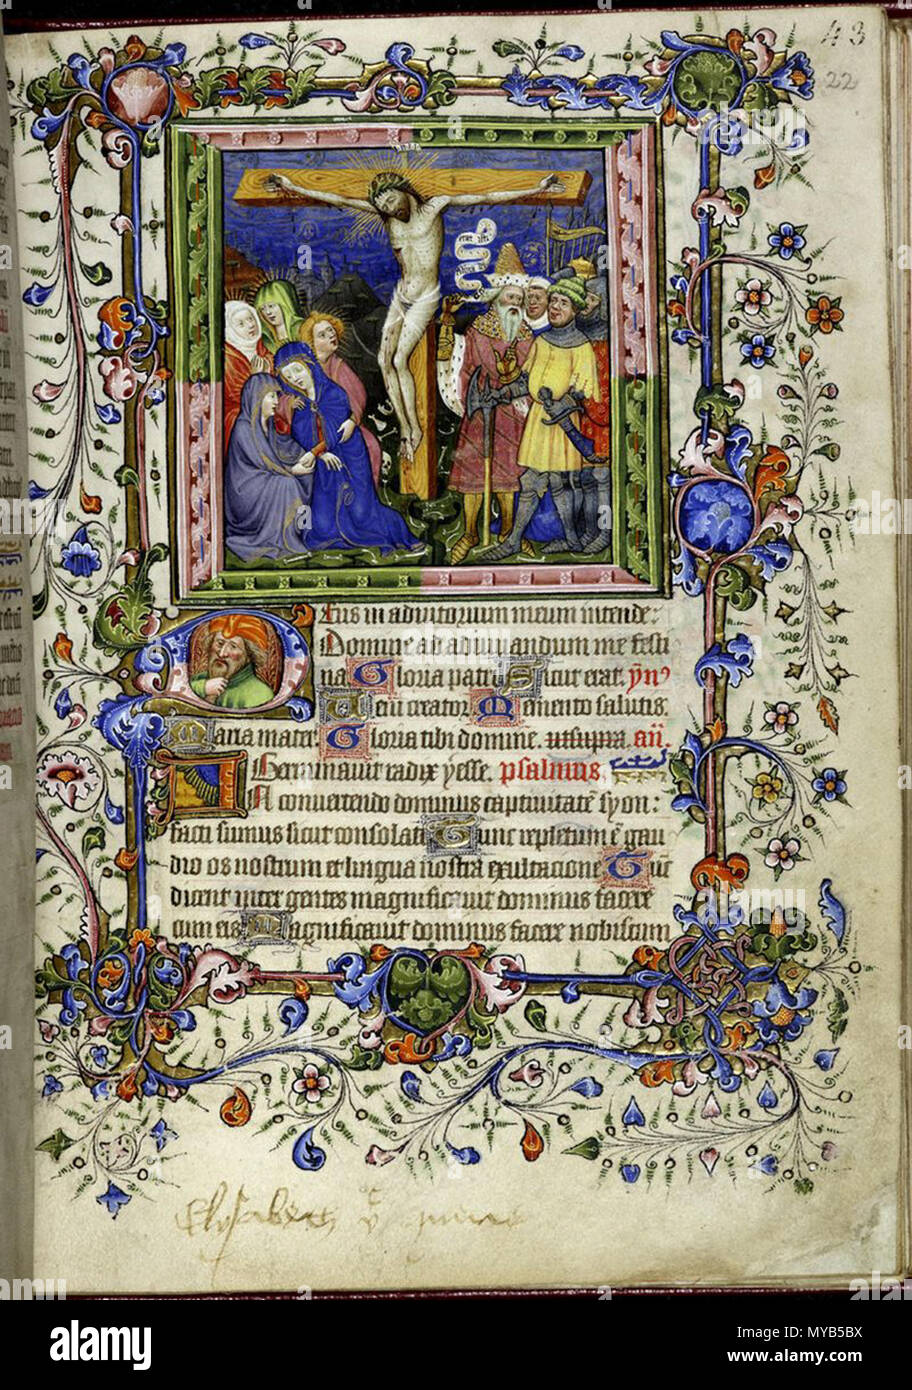 43
22
Deus in adiutorium meum intende:
Domine ad adiuvandum me festi
na Gloria patri Sicut erat. ymꝰ
Veni creator Memento salutis.
Maria mater Gloria tibi domine. ut supra. añ.
Germinavit radix yesse. psalmus.
IN convertendo dominus captivitatē syon:
facti sumus sicut consolati Tunc repletum ē gau
dio os nostrum et lingua nostra exultacione Tūc
dicent inter gentes magnificavit dominus facere
cum eis Magnificavit dominus facere nobiscum
Elysabeth ye quene
alamy
a
alamy
Image ID: MYB5BX
www.alamy.com